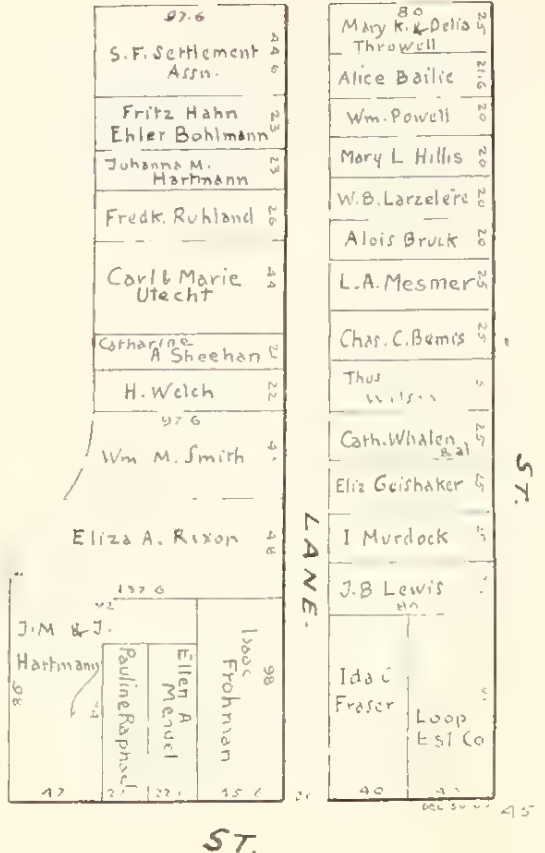 97.6
S.F. Settlement
Assn.
44 6
Fritz Hahn
Ehler Bohlmann
23
Juhanna M.
Hartmann
23
Fredk. Ruhland
26
Carl & Marie
Utecht
44
Catharine
A Sheehan
H. Welch
22
97 6
Wm M. Smith
Eliza A. Rixon
48
137 6
J.M & J.
Hartmann
92
98
Pauline Raphael
Ellen A
Menuel
Isaac
Frohman
98
47
22
45 6
LANE.
80
Mary K. & Delia
Throwell
25
Alice Bailie
21.6
Wm. Powell
20
Mary L Hillis
20
W.B. Larzelere
20
Alois Bruck
20
L.A. Mesmer
25
Chas. C. Bemis
25
Thos
Wilson
Cath. Whalen
& al
25
Eliz Geishaker
25
I Murdock
J.B Lewis
80
Ida C
Fraser
Loop
Est Co
40
45
ST.
ST.